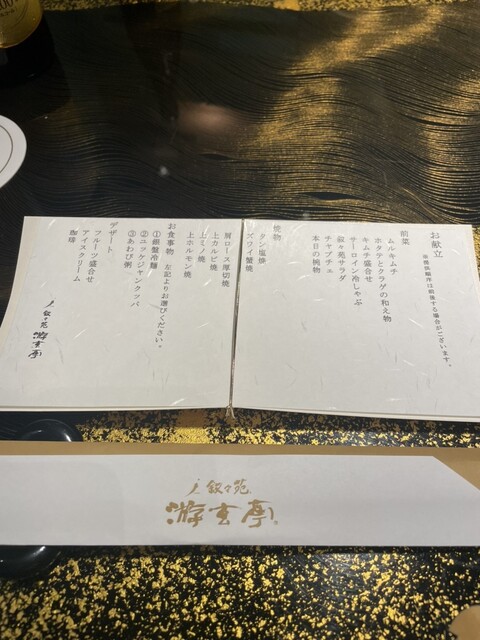 お献立
※提供順序は前後する場合がございます。
前菜
ムルキムチ
ホタテとクラゲの和え物
キムチ盛合せ
サーロイン冷しゃぶ
叙々苑サラダ
チャプチェ
本日の椀物
焼物
タン塩焼
ズワイ蟹焼
肩ロース厚切焼
上カルビ焼
上ミノ焼
上ホルモン焼
お食事物 左記よりお選びください。
①銀盤冷麺
②ユッケジャンクッパ
③あわび粥
デザート
フルーツ盛合せ
アイスクリーム
珈琲
叙々苑
游玄亭
叙々苑
游玄亭